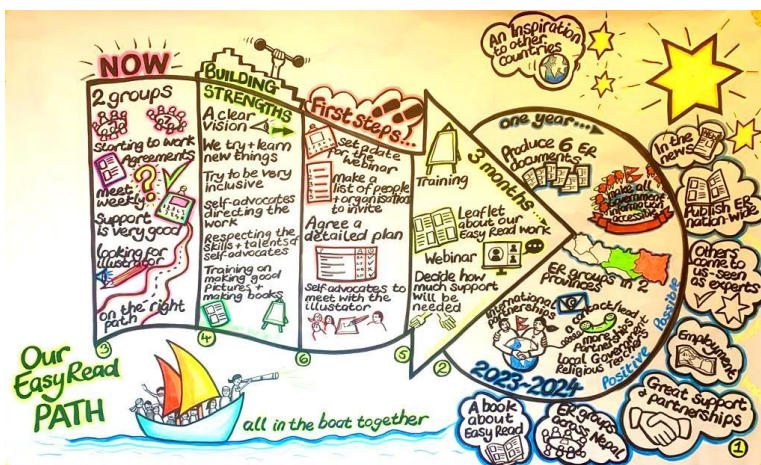 NOW
2 groups
starting to work
Agreements
meet
weekly
support
is very good
looking for
illustrator
on the right
path
3
BUILDING
STRENGTHS
A clear
vision
We try + learn
new things
Try to be very
inclusive
self-advocates
directing the
work
Respecting the
skills + talents of
self-advocates
Training on
making good
pictures +
making books
4
First steps...
set a date
for the
webinar
make a
list of people
+ organisations
to invite
Agree a
detailed plan
self advocates to
meet with the
illustator
6
3 months...
Training
Leaflet
about our
Easy Read work
Webinar
Decide how
much support
will be
needed
5
2
one year...
Produce 6 ER
documents
make all
government
information
accessible
ER groups in 2
Provinces
International
partnerships
a contact/lead
more
Partnerships
Local Government
Religious Teacher
2023-2024
Positive Possible
An Inspiration
to other
countries
In the
news
NEWS
Publish ER
nation wide
Others
come to
us - seen
as experts
Employment
Great support
+ partnerships
1
ER groups
across Nepal
A book
about
Easy Read
Our
Easy Read
PATH
all in the boat together